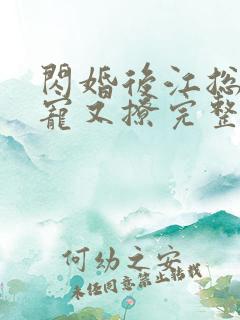 閃婚後江总
寵又撩完整
何幼之安
未经同意禁止转载